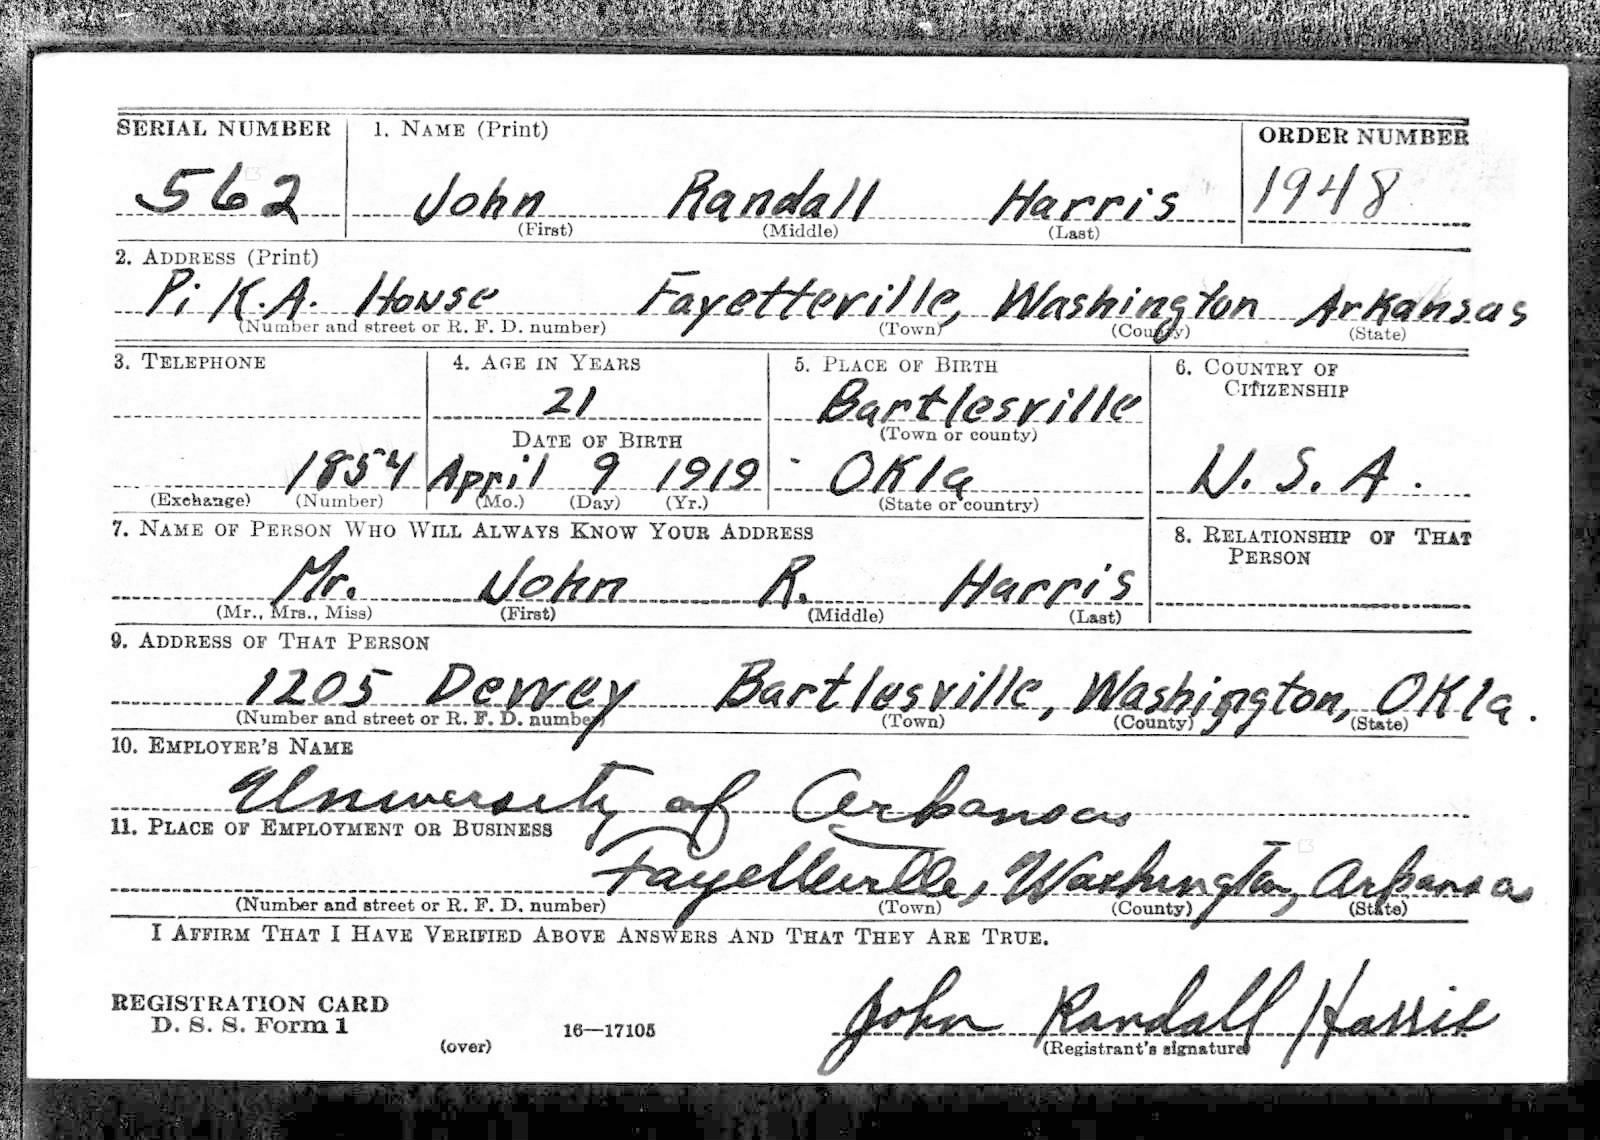 SERIAL NUMBER 1. NAME (Print) ORDER NUMBER
562 John Randall Harris 1948
(First) (Middle) (Last)
2. ADDRESS (Print)
Pi K.A. House Fayetteville, Washington Arkansas
(Number and street or R. F. D. number) (Town) (County) (State)
3. TELEPHONE 4. AGE IN YEARS 5. PLACE OF BIRTH 6. COUNTRY OF
CITIZENSHIP
21 Bartlesville
DATE OF BIRTH (Town or county)
1854 April 9 1919 Okla U. S. A.
(Exchange) (Number) (Mo.) (Day) (Yr.) (State or country)
7. NAME OF PERSON WHO WILL ALWAYS KNOW YOUR ADDRESS 8. RELATIONSHIP OF THAT
PERSON
Mr. John R. Harris
(Mr., Mrs., Miss) (First) (Middle) (Last)
9. ADDRESS OF THAT PERSON
1205 Dewey Bartlesville, Washington, Okla.
(Number and street or R. F. D. number) (Town) (County) (State)
10. EMPLOYER'S NAME
University of Arkansas
11. PLACE OF EMPLOYMENT OR BUSINESS
Fayetteville, Washington, Arkansas
(Number and street or R. F. D. number) (Town) (County) (State)
I AFFIRM THAT I HAVE VERIFIED ABOVE ANSWERS AND THAT THEY ARE TRUE.
REGISTRATION CARD
D. S. S. Form 1 16—17105 John Randall Harris
(over) (Registrant's signature)